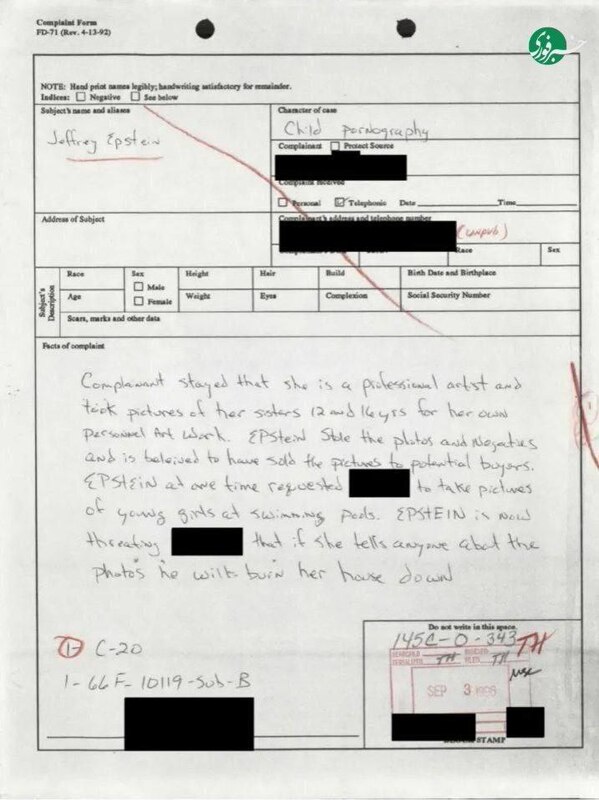 Complaint Form
FD-71 (Rev. 4-13-92)
خبرفوری
NOTE: Hand print names legibly; handwriting satisfactory for remainder.
Indices: Negative See below
Subject's name and aliases
Jeffrey Epstein
Character of case
Child pornography
Complainant Protect Source
Complaint received
Personal Telephonic Date Time
Address of Subject
Complainant's address and telephone number
(unpub)
Race Sex
Subject's Description
Race Sex Male Female Height Hair Build Birth Date and Birthplace
Age Weight Eyes Complexion Social Security Number
Scars, marks and other data
Facts of complaint
Complainant stayed that she is a professional artist and
took pictures of her sisters 12 and 16yrs for her own
personnel Art Work. EPStein Stole the photos and Negatives
and is beleived to have sold the pictures to potential buyers.
EPSTEIN at one time requested to take pictures
of young girls at swimming pools. EPSTEIN is now
threating that if she tells anyone abot the
photo's he will burn her house down
1- C-20
1- 66F-10119-Sub-B
Do not write in this space.
145C-0-343
TH
SEARCHED TH INDEXED
SERIALIZED FILED TH
SEP 3 1996
STAMP